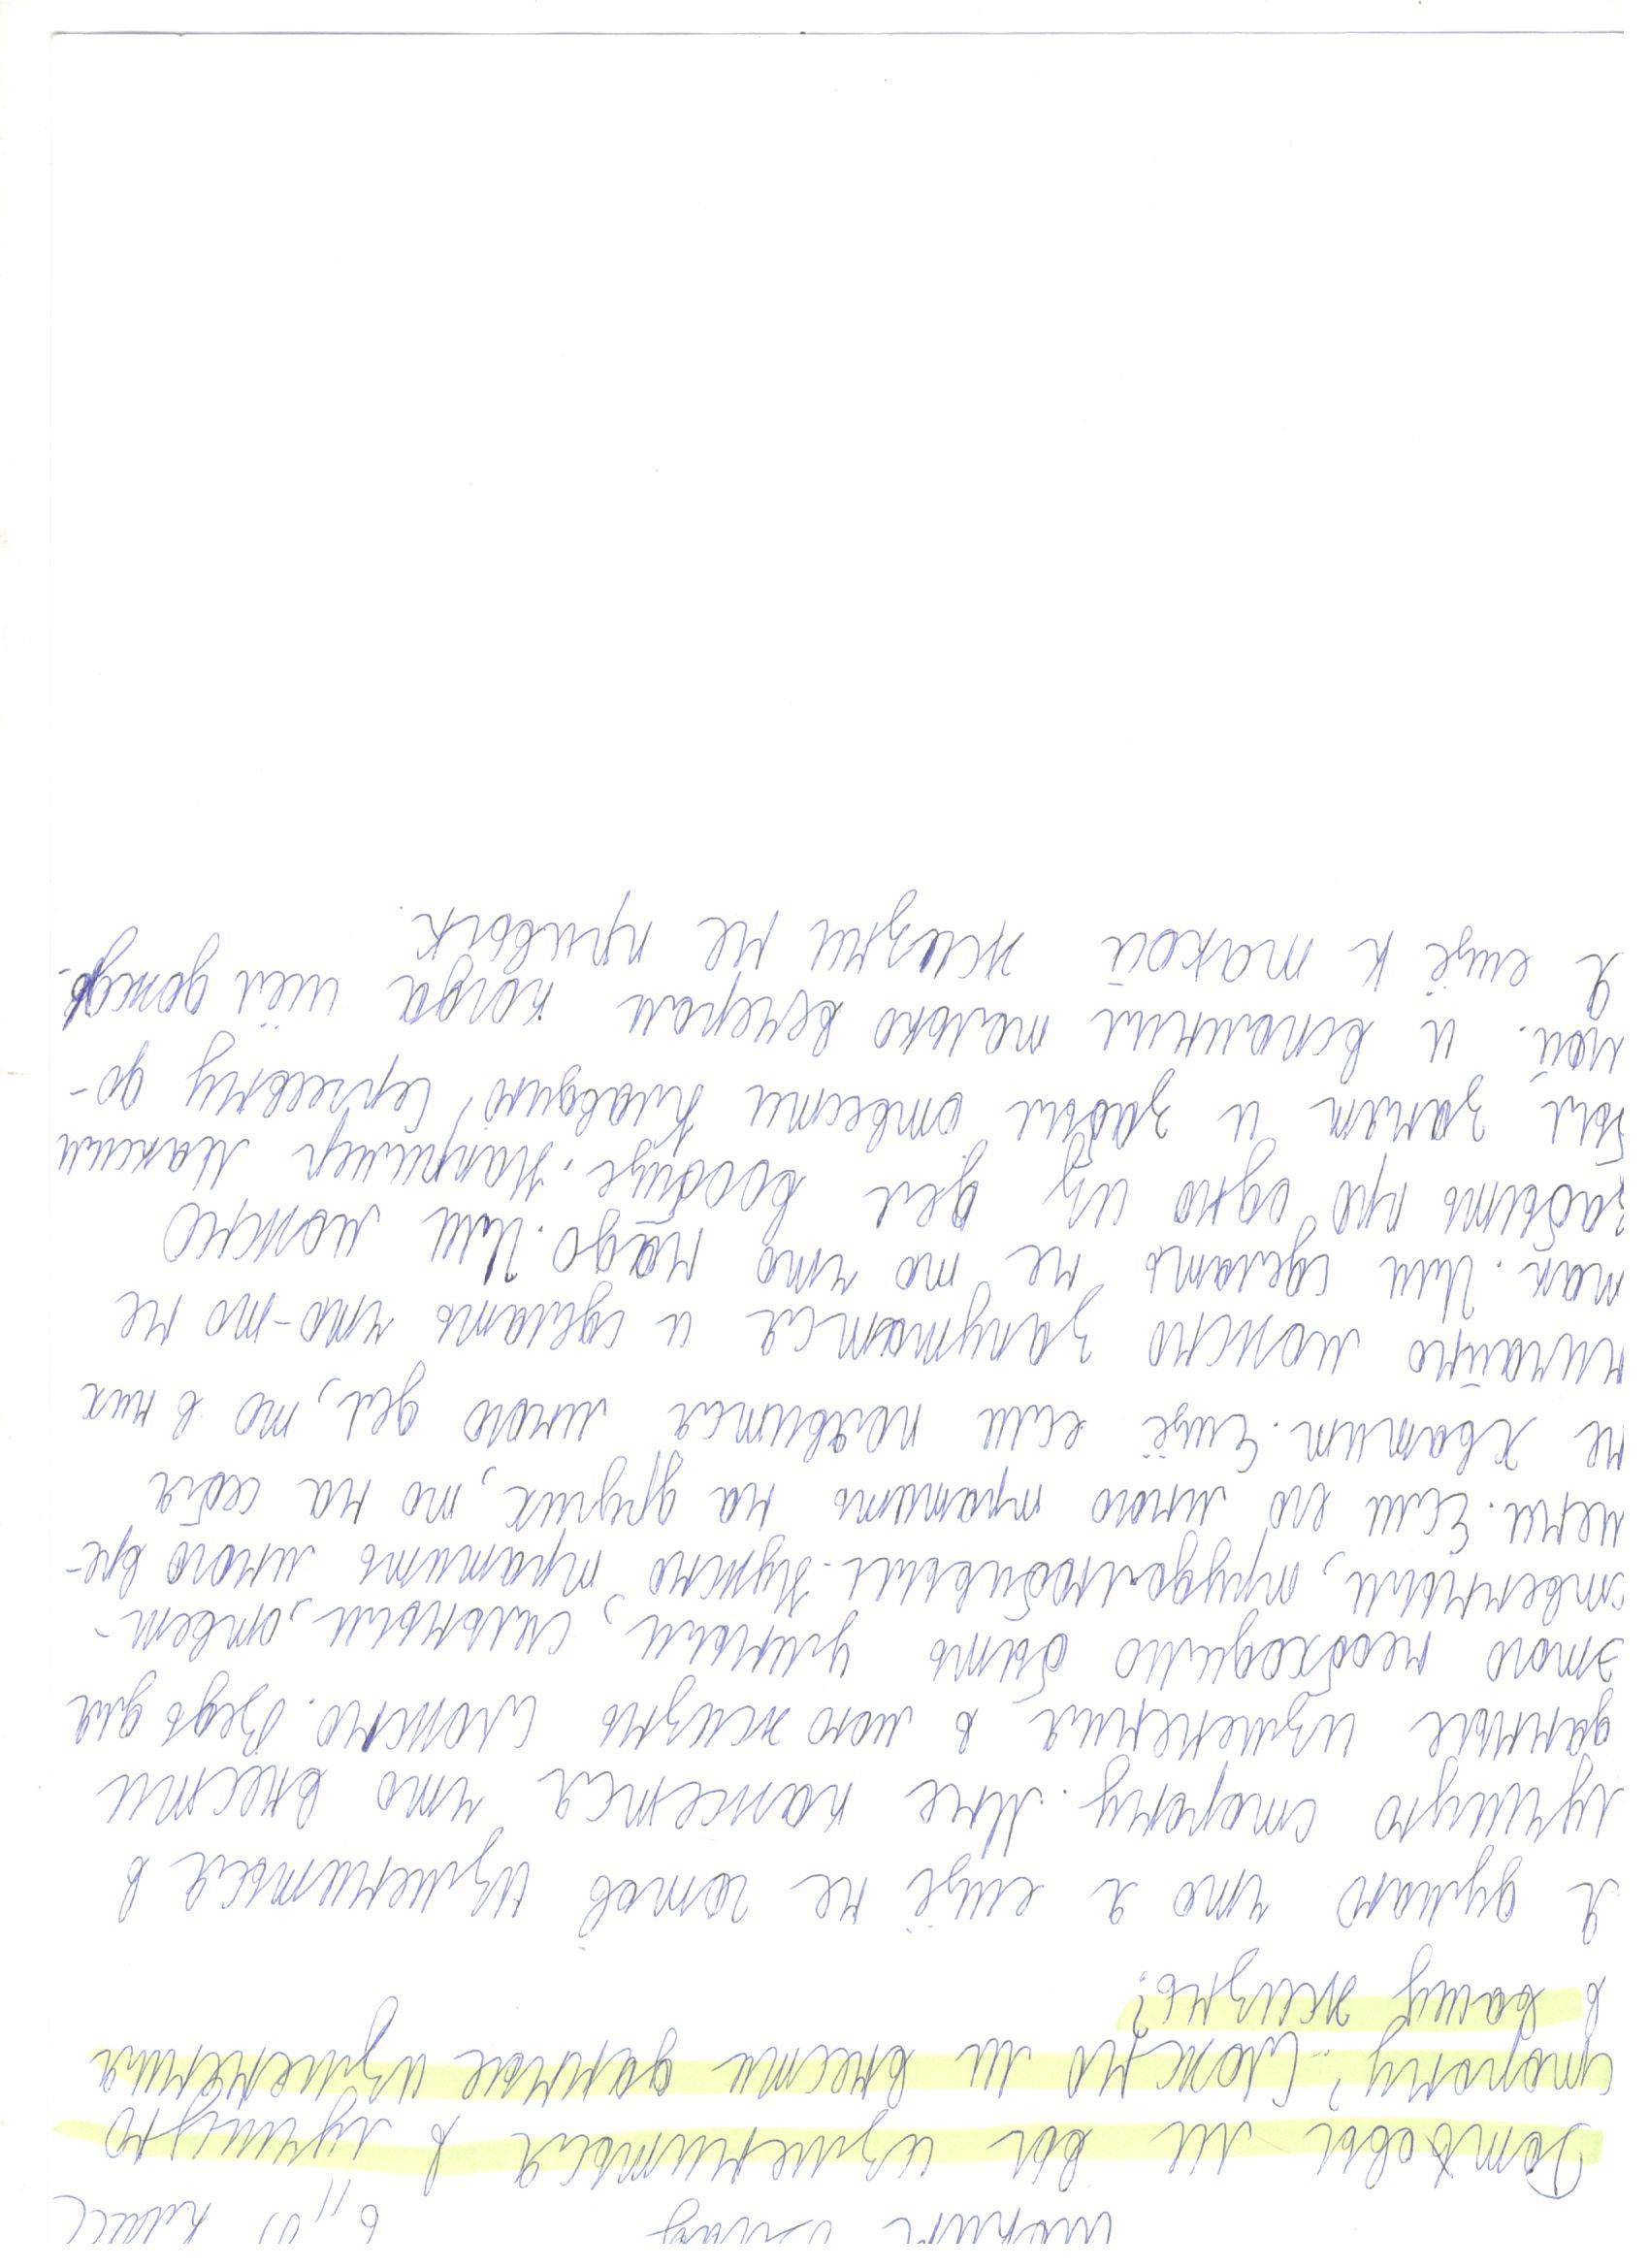 6 "О" класс
Готовы ли вы измениться в лучшую
сторону? Сложно ли внести данные изменения
в вашу жизнь?
Я думаю что я ещё не готов измениться в
лучшую сторону. Мне кажется что внести
данные изменения в мою жизнь сложно. Ведь для
этого необходимо быть умным, сильным, ответ-
ственным, трудолюбивым. Нужно тратить много вре-
мени. Если его много тратить на других, то на себя
не хватит. Ещё если появится много дел, то в них
можно запутатся и сделать что-то не
так. Или сделать не то что надо. Или можно
забыть про одно из дел вообще. Например Максим
был занят и забыл отвести Клавдию Сергеевну до-
мой. и вспомнил только вечером когда шёл дождь.
Я ещё к такой жизни не привык.